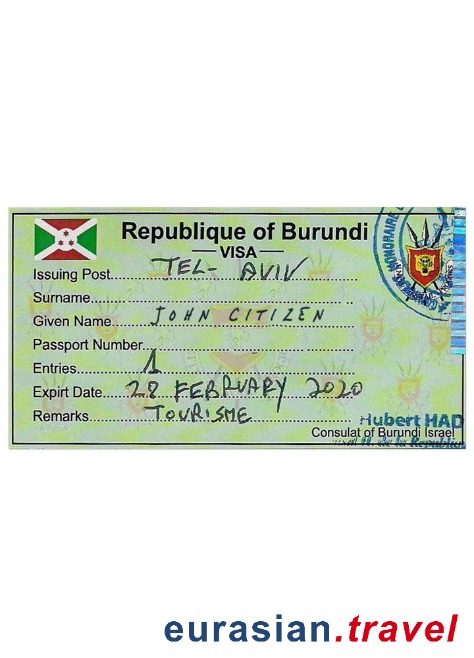 Republique of Burundi
VISA
Issuing Post.......TEL-AVIV
Surname
Given Name.......JOHN CITIZEN
Passport Number
Entries.......1
Expirt Date.......28 FEBRUARY 2020
Remarks.......TOURISME
Hubert HAD
Consulat of Burundi Israel
H. de la Republiqu
HONORAIRE
eurasian.travel